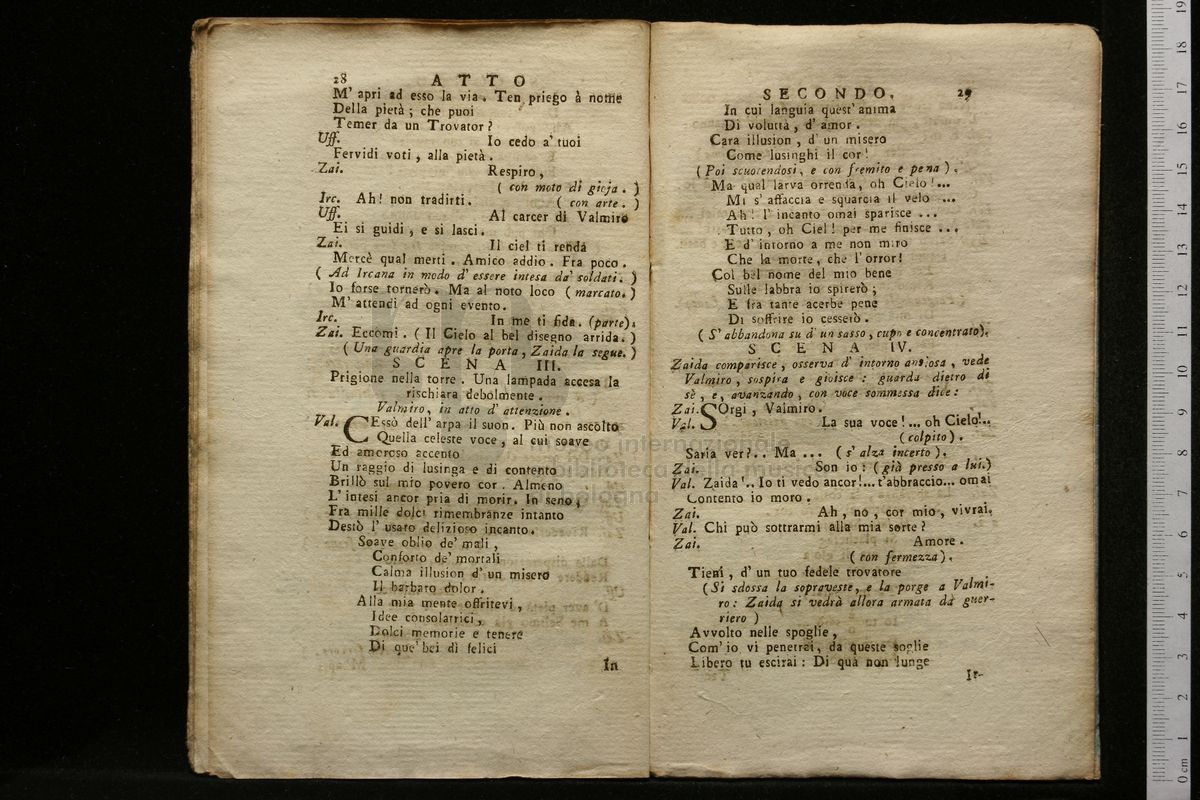 28 ATTO
M' apri ad esso la via. Ten priego à nome
Della pietà; che puoi
Temer da un Trovator?
Uff. Io cedo a' tuoi
Fervidi voti, alla pietà.
Zai. Respiro,
( con moto di gioja. )
Irc. Ah! non tradirti. ( con arte. )
Uff. Al carcer di Valmiro
Ei si guidi, e si lasci.
Zai. Il ciel ti renda
Mercè qual merti. Amico addio. Fra poco.
( Ad Ircana in modo d' essere intesa da' soldati. )
Io forse tornerò. Ma al noto loco ( marcato. )
M' attendi ad ogni evento.
Irc. In me ti fida. (parte).
Zai. Eccomi. ( Il Cielo al bel disegno arrida. )
( Una guardia apre la porta, Zaida la segue. )
SCENA III.
Prigione nella torre. Una lampada accesa la
rischiara debolmente.
Valmiro, in atto d' attenzione.
Val. CEssò dell' arpa il suon. Più non ascolto
Quella celeste voce, al cui soave
Ed amoroso accento
Un raggio di lusinga e di contento
Brillò sul mio povero cor. Almeno
L' intesi ancor pria di morir. In seno,
Fra mille dolci rimembranze intanto
Destò l' usato delizioso incanto.
Soave oblio de' mali,
Conforto de' mortali
Calma illusion d' un misero
Il barbaro dolor.
Alla mia mente offritevi,
Idee consolatrici,
Dolci memorie e tenere
Di que' bei dì felici
In
SECONDO. 29
In cui languia quest' anima
Di voluttà, d' amor.
Cara illusion, d' un misero
Come lusinghi il cor!
( Poi scuotendosi, e con fremito e pena ).
Ma qual larva orrenda, oh Cielo!...
Mi s' affaccia e squarcia il velo ...
Ah! l' incanto omai sparisce ...
Tutto, oh Ciel! per me finisce ...
E d' intorno a me non miro
Che la morte, che l' orror!
Col bel nome del mio bene
Sulle labbra io spirerò;
E fra tante acerbe pene
Di soffrire io cesserò.
( S' abbandona su d' un sasso, cupo e concentrato).
SCENA IV.
Zaida comparisce, osserva d' intorno ansiosa, vede
Valmiro, sospira e gioisce: guarda dietro di
sè, e, avanzando, con voce sommessa dice:
Zai. SOrgi, Valmiro.
Val. La sua voce!... oh Cielo!..
(colpito).
Saria ver?.. Ma ... ( s' alza incerto).
Zai. Son io: (già presso a lui.)
Val. Zaida!.. Io ti vedo ancor!... t'abbraccio... omai
Contento io moro.
Zai. Ah, no, cor mio, vivrai.
Val. Chi può sottrarmi alla mia sorte?
Zai. Amore.
( con fermezza).
Tieni, d' un tuo fedele trovatore
(Si sdossa la sopraveste, e la porge a Valmi-
ro: Zaida si vedrà allora armata da guer-
riero )
Avvolto nelle spoglie,
Com' io vi penetrai, da queste soglie
Libero tu escirai: Di quà non lunge
Ir-
museo internazionale
e biblioteca della musica
di bologna
0 cm 1 2 3 4 5 6 7 8 9 10 11 12 13 14 15 16 17 18 19